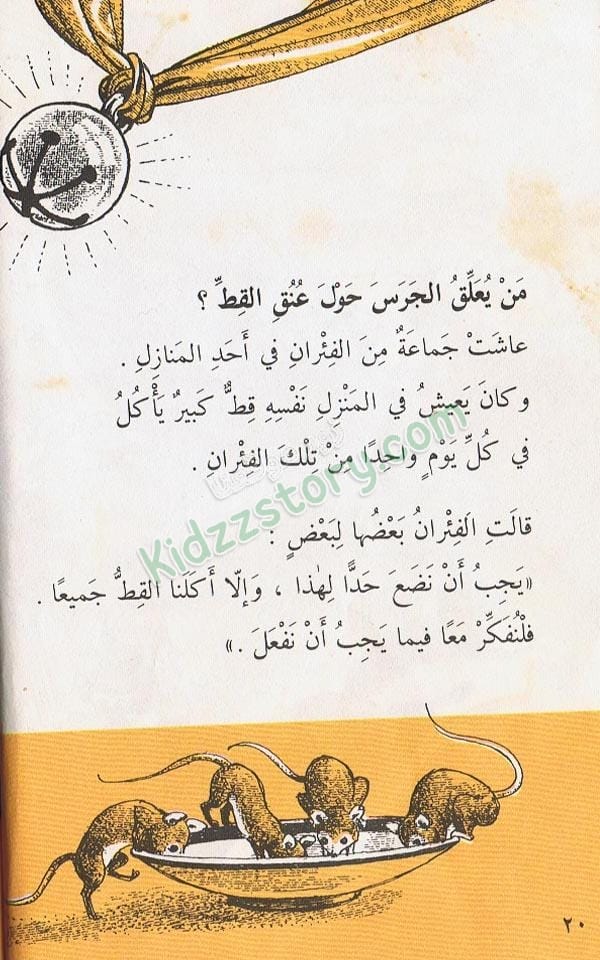 مَنْ يُعَلِّقُ الجَرَسَ حَوْلَ عُنُقِ القِطِّ ؟
عاشَتْ جَماعَةٌ مِنَ الفِئْرانِ في أَحَدِ المَنازِلِ .
وكانَ يَعيشُ في المَنْزِلِ نَفْسِهِ قِطٌّ كَبيرٌ يَأْكُلُ
في كُلِّ يَوْمٍ واحِدًا مِنْ تِلْكَ الفِئْرانِ .
قالَتِ الفِئْرانُ بَعْضُها لِبَعْضٍ :
«يَجِبُ أَنْ نَضَعَ حَدًّا لِهٰذا ، وَإلّا أَكَلَنا القِطُّ جَميعًا .
فَلْنُفَكِّرْ مَعًا فيما يَجِبُ أَنْ نَفْعَلَ .»
Kidzzstory.com
٢٠